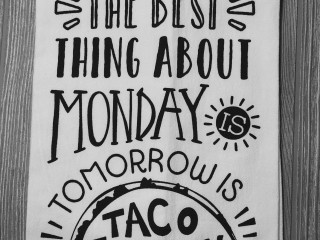 THE BEST
THING ABOUT
MONDAY IS
TOMORROW IS
TACO